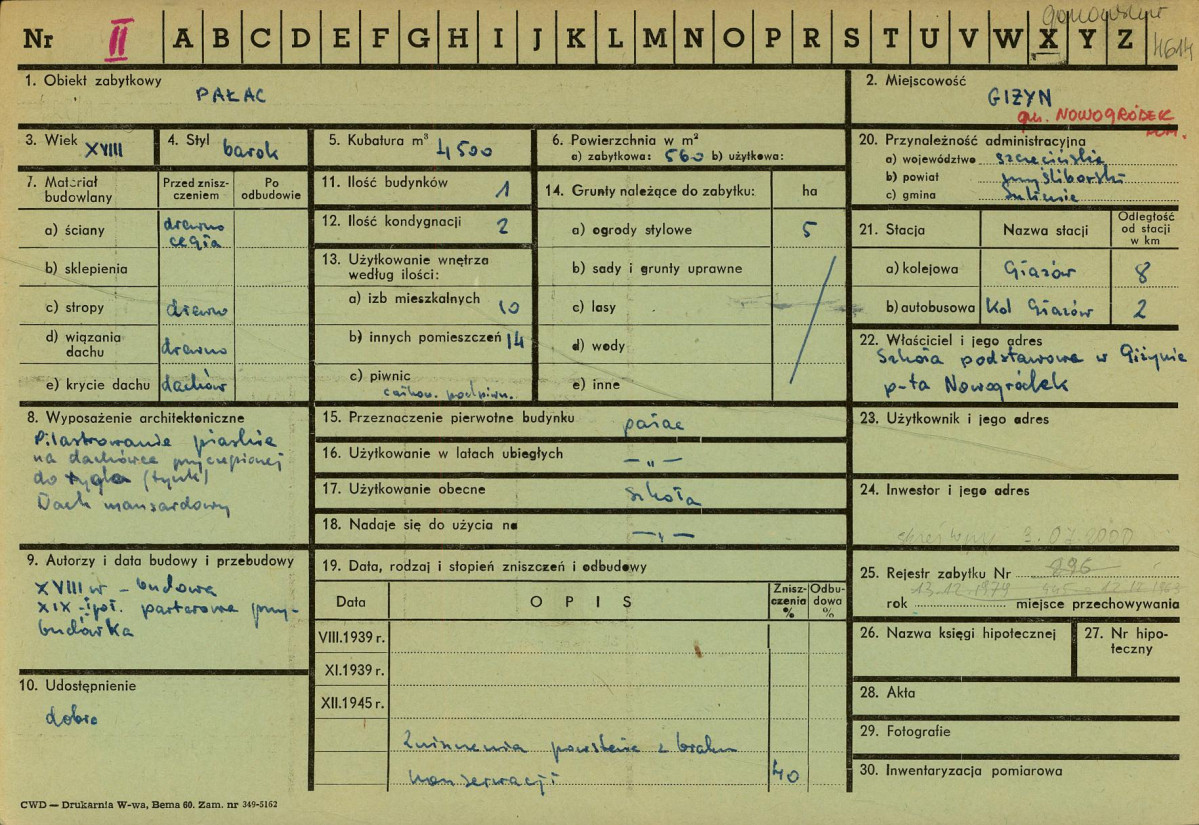 gorzowskie
Nr II A B C D E F G H I J K L M N O P R S T U V W X Y Z 4614
1. Obiekt zabytkowy
PAŁAC
2. Miejscowość
GIŻYN
gm. NOWOGRÓDEK
POM.
3. Wiek XVIII
4. Styl barok
5. Kubatura m³ 4500
6. Powierzchnia w m²
a) zabytkowa: 560 b) użytkowa:
7. Materiał budowlany
Przed zniszczeniem
Po odbudowie
a) ściany drewno
cegła
b) sklepienia
c) stropy drewno
d) wiązania dachu drewno
e) krycie dachu dachów
8. Wyposażenie architektoniczne
Pilastrowanie płaskie
na dachówce przyczepionej
do rygla (tynk)
Dach mansardowy
9. Autorzy i data budowy i przebudowy
XVIII w – budowa
XIX - I poł. parterowa przy-
budówka
10. Udostępnienie
dobre
11. Ilość budynków 1
12. Ilość kondygnacji 2
13. Użytkowanie wnętrza
według ilości:
a) izb mieszkalnych 10
b) innych pomieszczeń 14
c) piwnic
całkow. podpiwn.
14. Grunty należące do zabytku: ha
a) ogrody stylowe 5
b) sady i grunty uprawne
c) lasy
d) wody
e) inne
15. Przeznaczenie pierwotne budynku pałac
16. Użytkowanie w latach ubiegłych — „ —
17. Użytkowanie obecne szkoła
18. Nadaje się do użycia na — „ —
19. Data, rodzaj i stopień zniszczeń i odbudowy
Data
O P I S
Zniszczenia %
Odbudowa %
VIII.1939 r.
XI.1939 r.
XII.1945 r.
Zniszczenia powstałe z braku
konserwacji 40
20. Przynależność administracyjna
a) województwo szczecińskie
b) powiat myśliborski
c) gmina
21. Stacja
Nazwa stacji
Odległość od stacji w km
a) kolejowa Giazów 8
b) autobusowa Kol Giazów 2
22. Właściciel i jego adres
Szkoła podstawowa w Giżynie
p-ta Nowogródek
23. Użytkownik i jego adres
24. Inwestor i jego adres
3.07.2000
25. Rejestr zabytku Nr 896
13.12.1979 12.12.1963
rok miejsce przechowywania
26. Nazwa księgi hipotecznej
27. Nr hipoteczny
28. Akta
29. Fotografie
30. Inwentaryzacja pomiarowa
CWD — Drukarnia W-wa, Bema 60. Zam. nr 349-5162